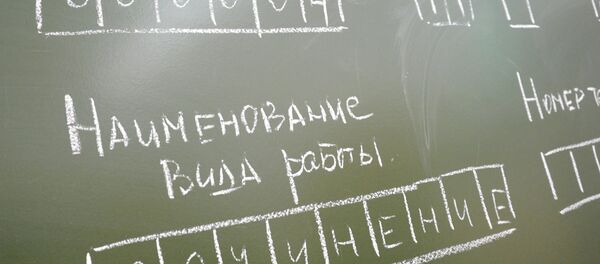 Наименование
вида работы.
Номер
СОЧИНЕНИЕ